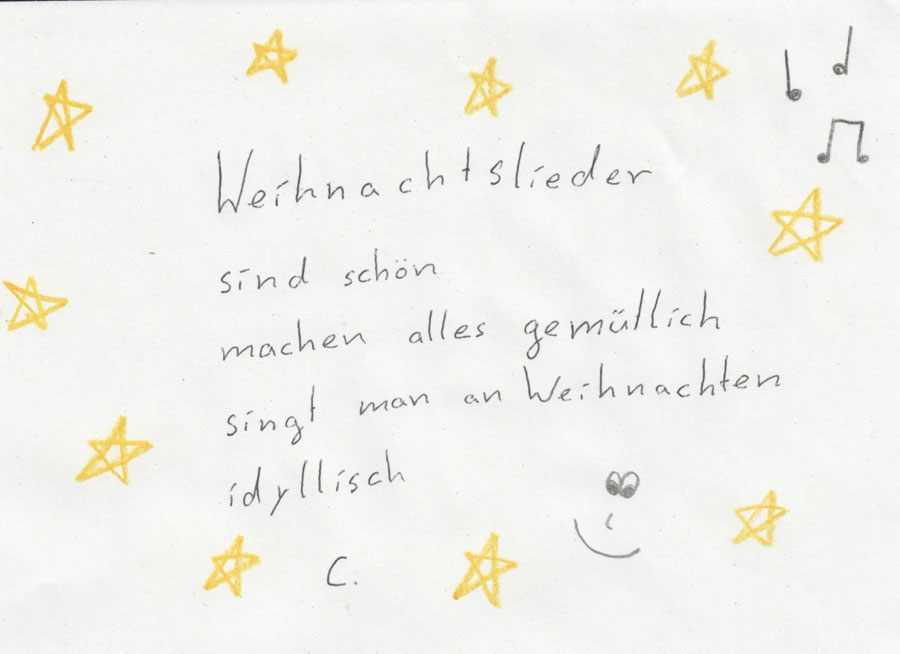 Weihnachtslieder
sind schön
machen alles gemütlich
singt man an Weihnachten
idyllisch
C.